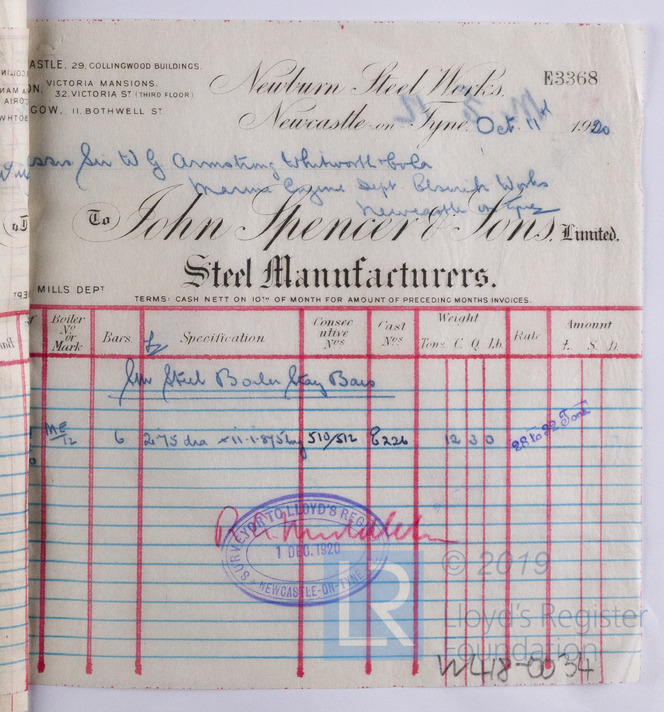 ASTLE, 29, COLLINGWOOD BUILDINGS.
ON, VICTORIA MANSIONS.
32, VICTORIA ST (THIRD FLOOR)
GOW, 11, BOTHWELL ST
Newburn Steel Works,
E3368
Newcastle-on-Tyne, Oct. 11th 1920
Sir W G Armstrong Whitworth & Co Ld
Marine Engine Dept. Elswick Works
Newcastle on Tyne
To John Spencer & Sons, Limited.
Steel Manufacturers.
MILLS DEPT
TERMS: CASH NETT ON 10TH OF MONTH FOR AMOUNT OF PRECEDING MONTHS INVOICES.
Boiler No or Mark Bars Specification Consecutive Nos Cast Nos Weight Tons C. Q. Lb. Rate Amount £. S. D.
Steel Boiler Stay Bars
ME/12 6 2.75 dia x 11.1.875 lg 510/512 E226 12 3 0 28 to 32 Tons
SURVEYOR TO LLOYD'S REGI
1 DEC. 1920
NEWCASTLE-ON-TYNE
LR
© 2019
Lloyd's Register
Foundation
W418-0034